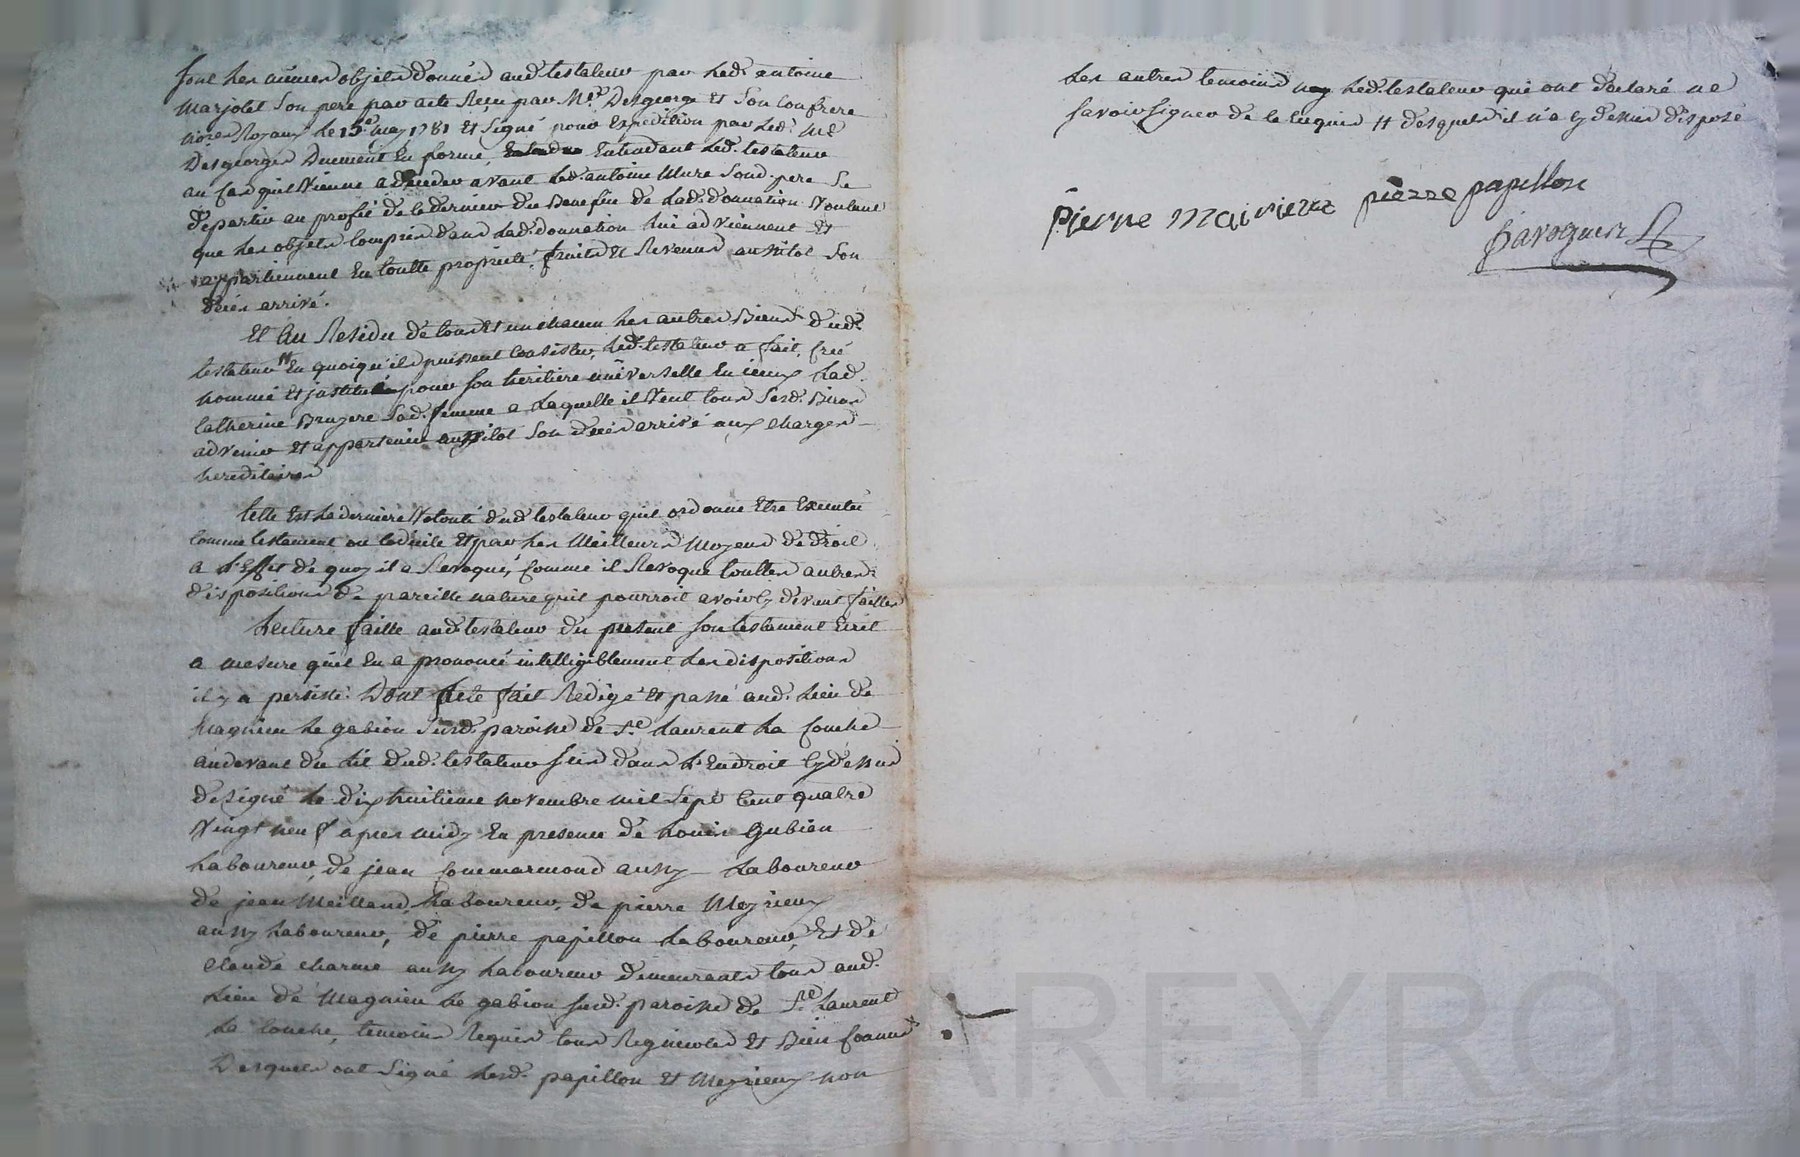 font les mêmes objets donnés aud. testateur par led. antoine
marjolet son pere par acte Reçu par Me. Desgeorge Et Son Confrere
nores Royaux le 15e. may 1781 Et Signé pour Expédition par led. Me
Desgeorges Duement En forme, Entendant led. testateur
au Cas qu'il Vienne a deceder avant led. antoine Sond. pere Se
departir au profit de le dernier du Benefice de lad. donnation Voulant
que les objets Compris dans lad. donnation lui adviennent Et
appartiennent En toutte propriété, fruits Et Revenus aussitot Son
décès arrivé.
Et Au Residu de tous Et un chacun les autres Biens dud.
testateur En quoi qu'ils puissent Consister, led. testateur a fait, créé
nommé Et institué pour Son heritiere universelle En iceux lad.
Catherine Bruyere Sad. femme a laquelle il Veut tous Sesd. Biens
advenir Et appartenir aussitot Son décès arrivé aux charges
hereditaires
Telle Est la derniere Volonté dud. testateur qu'il ordonne Etre Executée
Comme testament ou Codicile Et par les Meilleurs Moyens de droit
a L'Effet de quoy il a Revoqué, Comme il Revoque touttes autres
dispositions de pareille nature qu'il pourroit avoir Cy devant faittes
Lecture faitte aud. testateur du present Son testament Ecrit
a mesure qu'il En a prononcé intelligiblement les dispositions
il y a persisté. Dont acte fait Redigé Et passé aud. Lieu de
Magnieu le gabion Susd. paroisse de St. Laurent La Conche
audevant du Lit dud. testateur Scis dans L'Endroit Cy dessus
designé le dix huitieme novembre mil Sept Cent quatre
Vingt neuf apres midy En presence de Louis Gubien
Laboureur, de jean Commarmond aussy Laboureur
de jean Meilland, Laboureur, de pierre Meyrieux
aussy Laboureur, de pierre papillon Laboureur, Et de
Claude charme aussy Laboureur demeurants tous aud.
Lieu de Magnieu le gabion Susd. paroisse de St. Laurent
La Conche, temoins Requis tous Regnicoles Et Bien Connus
Desquels ont Signé lesd. papillon Et Meyrieux non
les autres temoins ny led. testateur qui ont declaré ne
Savoir Signer de le Enquis # desquels il n'a Cy dessus disposé
Pierre Mairieux pierre papillon